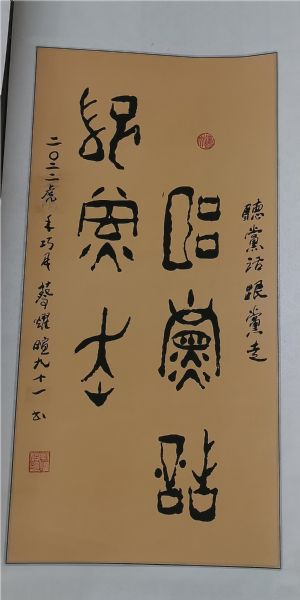 聽黨話跟黨走
聽黨話
跟黨走
二〇二二虎年巧月蔡耀暄九十一书